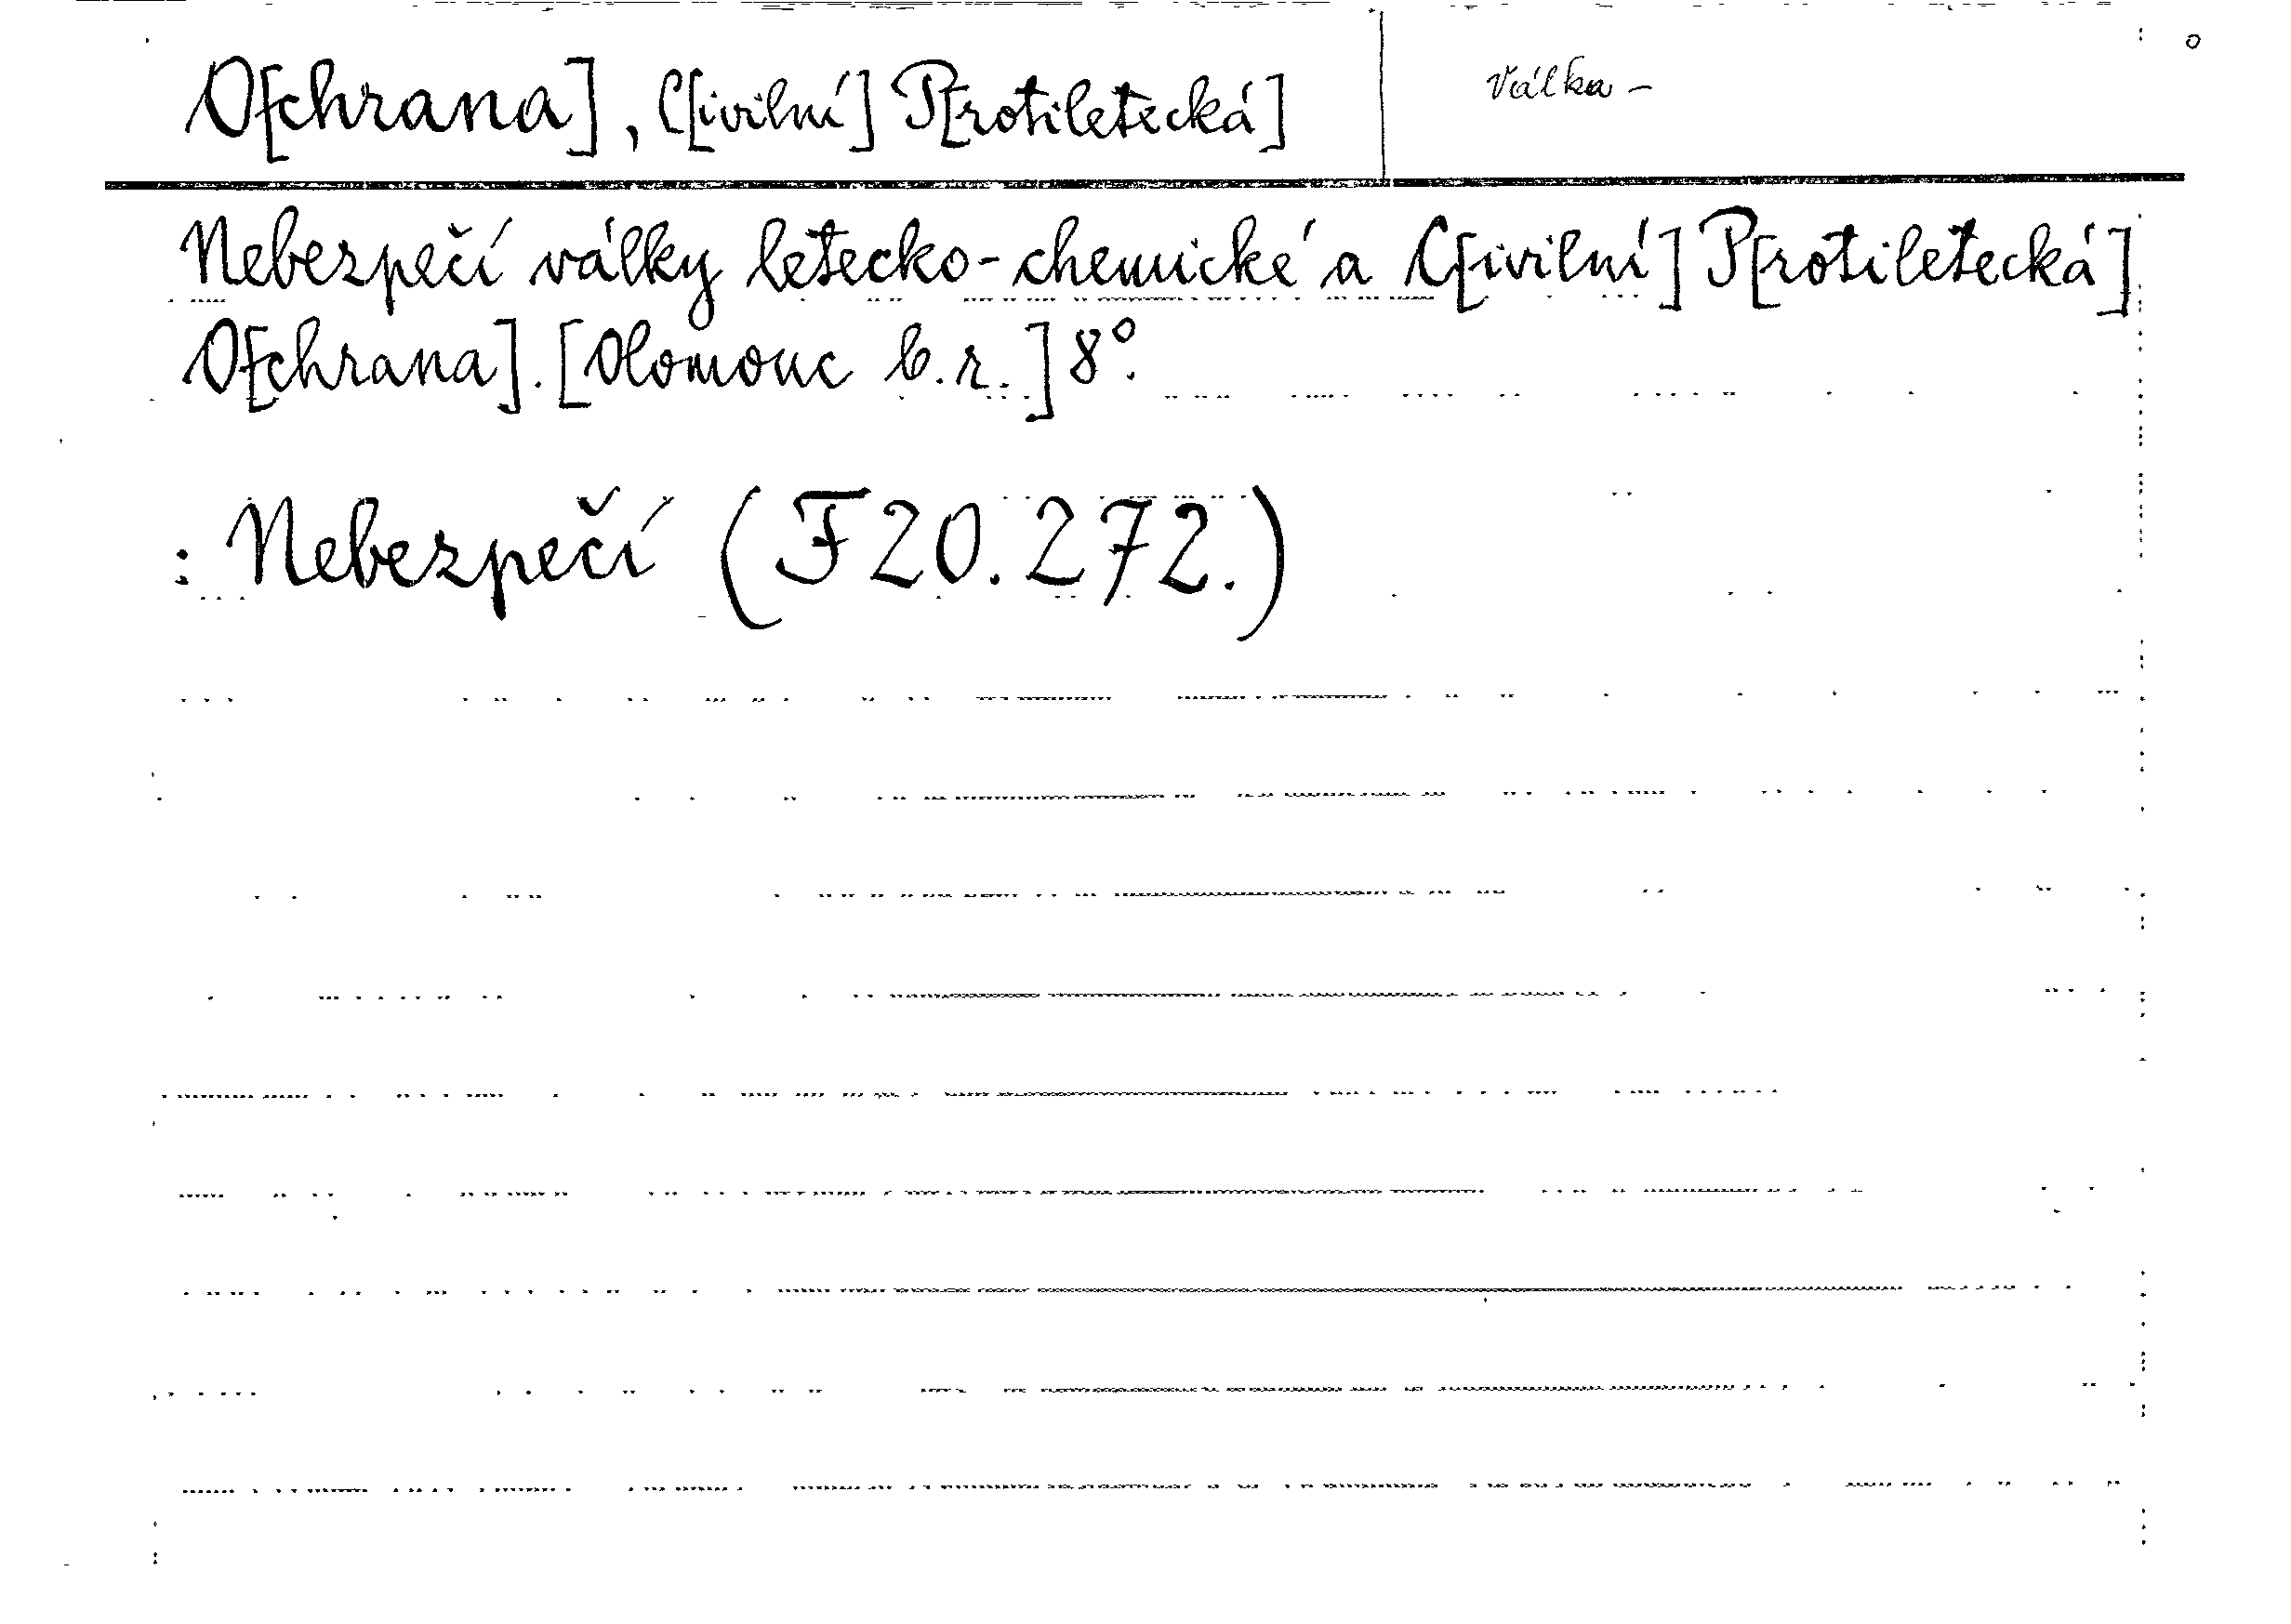 O[chrana], C[ivilní] P[rotiletecká]
Válka –
Nebezpečí války letecko-chemické a C[ivilní] P[rotiletecká]
O[chrana]. [Olomouc b.r.] 8°.
: Nebezpečí (F 20.272.)